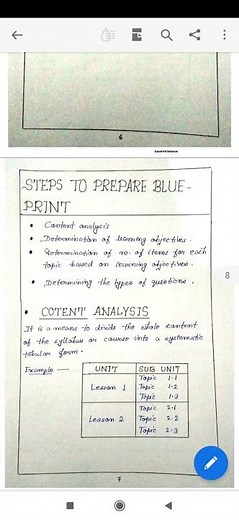 6
STEPS TO PREPARE BLUE-
PRINT
• Content analysis
• Determination of learning objectives.
• Determination of no of items for each
topic based on learning objectives.
• Determining the types of questions.
• COTENT ANALYSIS
It is a means to divide the whole content
of the syllabus or course into a systematic
tabular form.
Example —
UNIT SUB UNIT
Lesson 1
Topic 1.1
Topic 1.2
Topic 1.3
Lesson 2
Topic 2.1
Topic 2.2
Topic 2.3
8
7